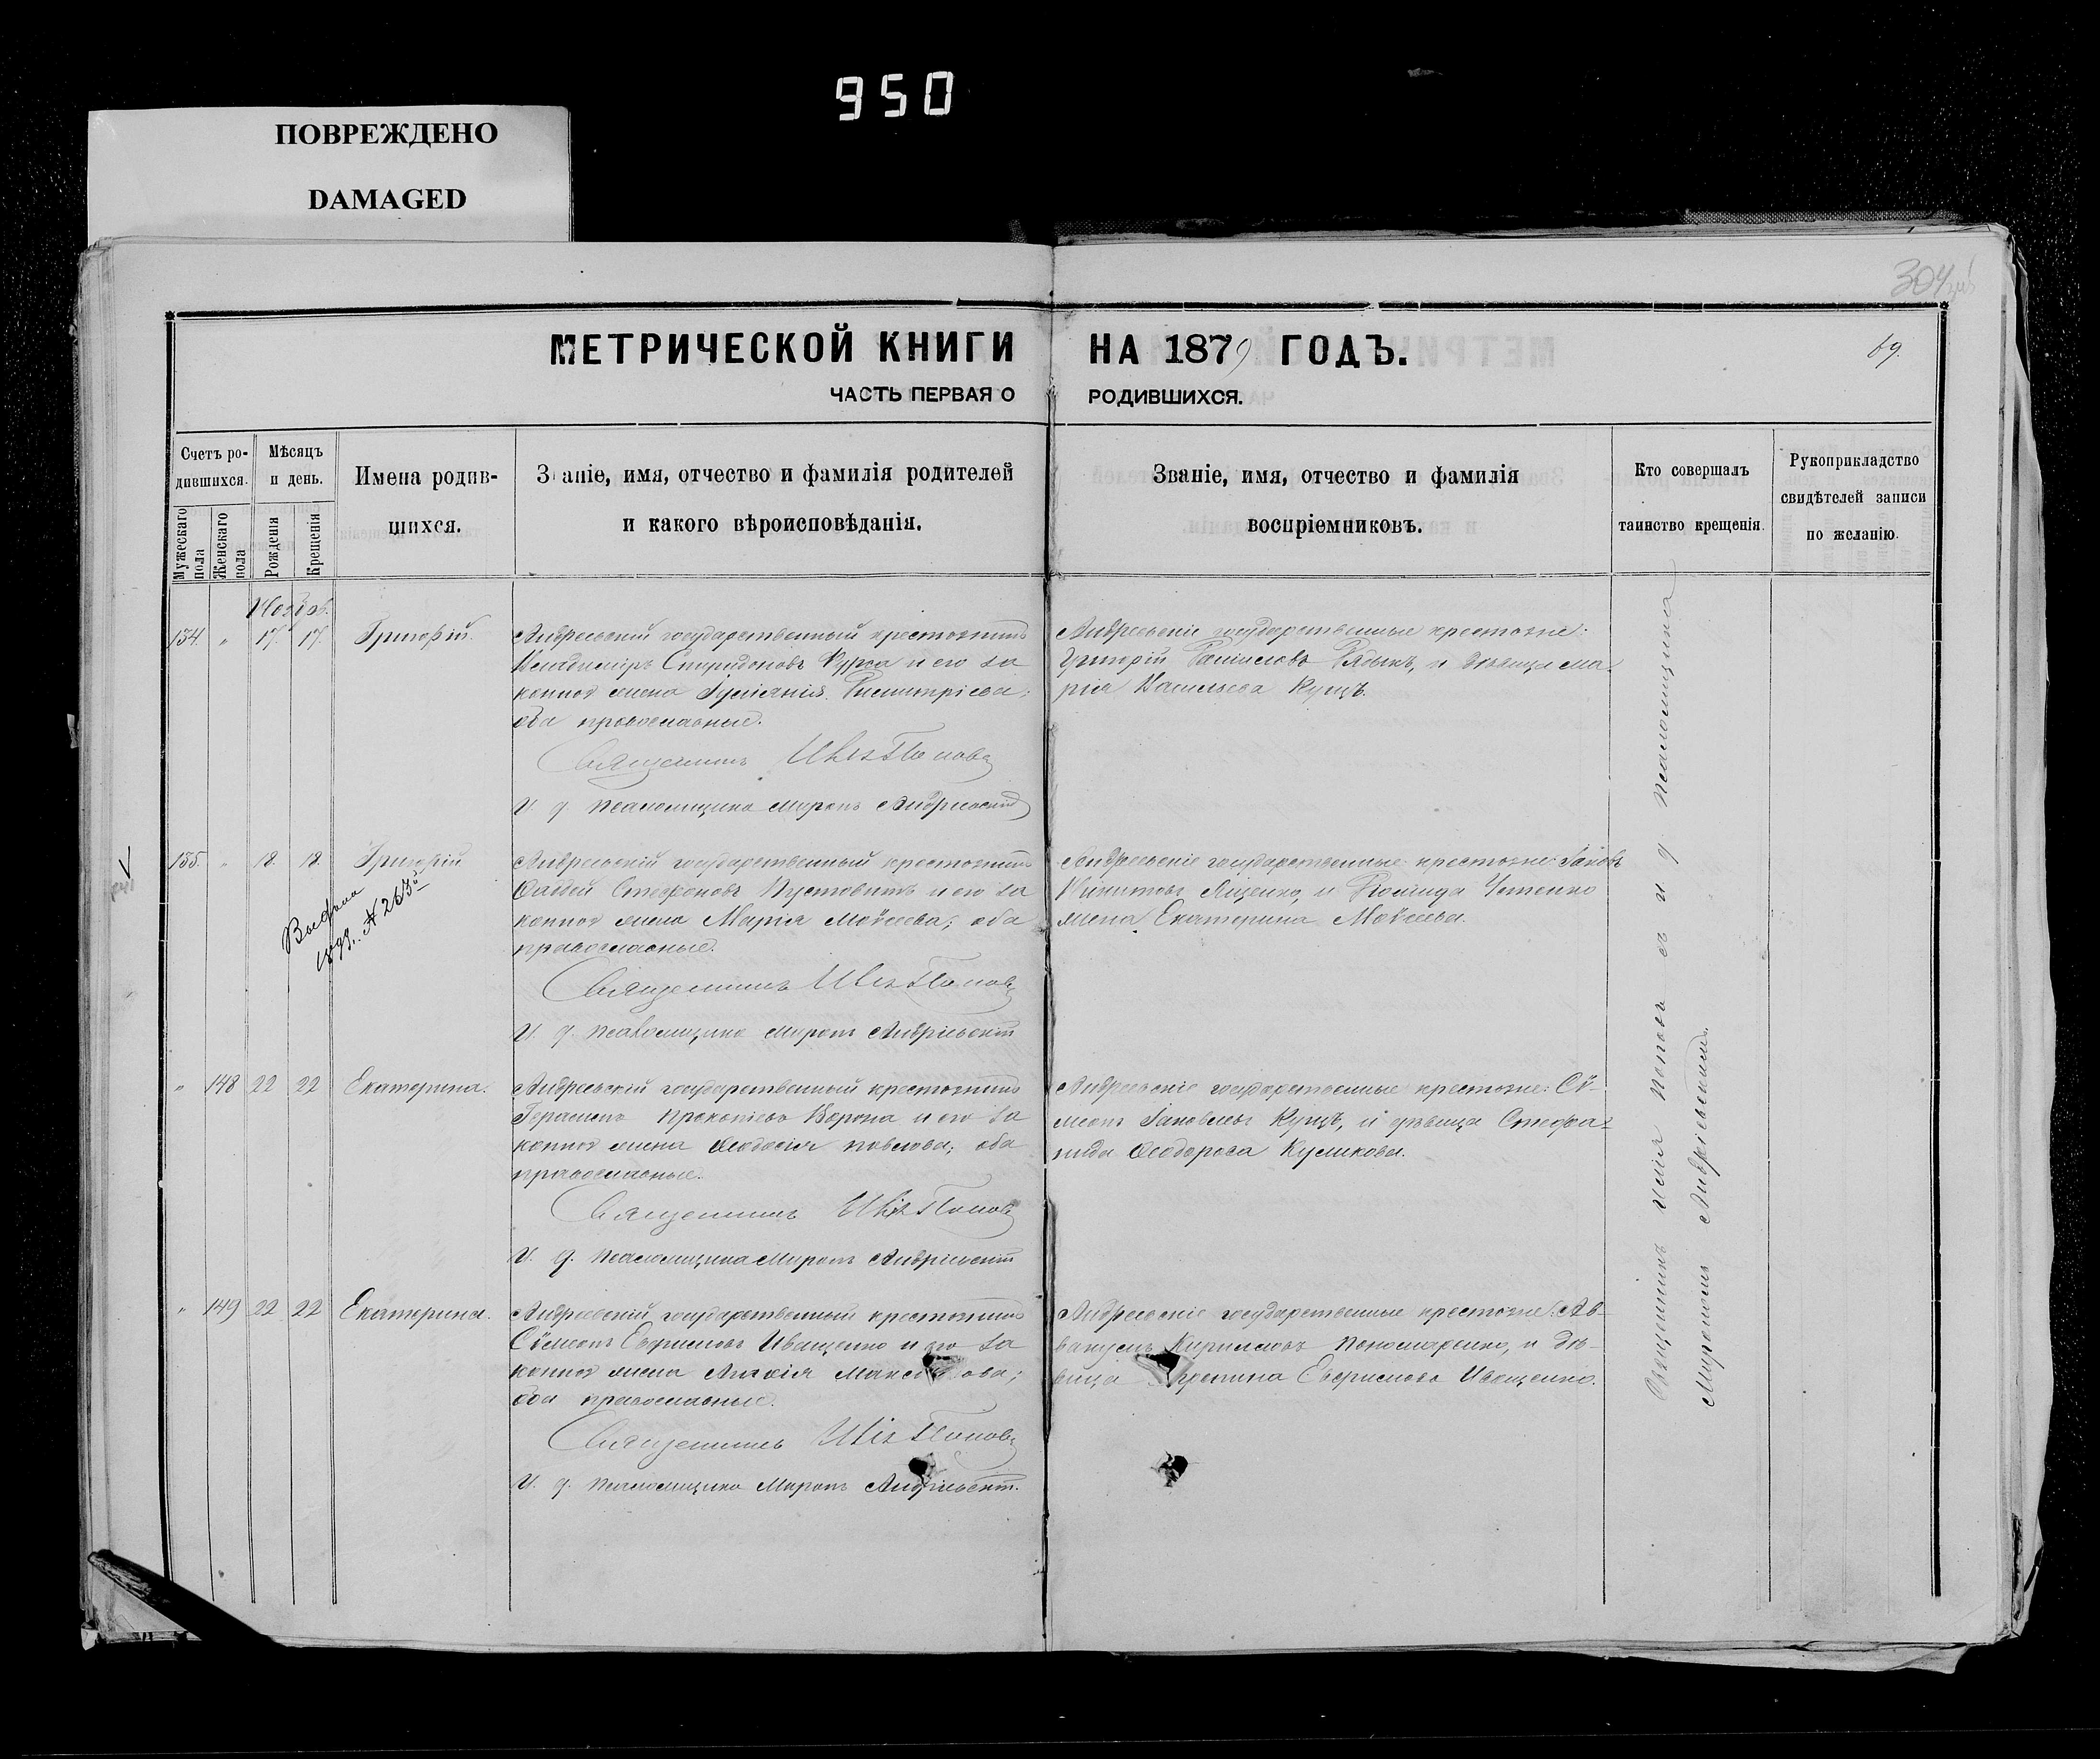 950
ПОВРЕЖДЕНО
DAMAGED
304
МЕТРИЧЕСКОЙ КНИГИ НА 1879 ГОДЪ.
69.
ЧАСТЬ ПЕРВАЯ О РОДИВШИХСЯ.
Счетъ ро-
дившихся.
Мужескаго пола
Женскаго пола
Мѣсяцъ
и день.
Рожденія
Крещенія
Имена родив-
шихся.
Званіе, имя, отчество и фамилія родителей
и какого вѣроисповѣданія.
Званіе, имя, отчество и фамилія
воспріемниковъ.
Кто совершалъ
таинство крещенія.
Рукоприкладство
свидѣтелей записи
по желанію.
Ноябр.
134. " 17. 17. Григорій.
Андреевскій государственный крестьянинъ
Владиміръ Спиридоновъ Курса и его за
конная жена Іуліанія Димитріева;
оба православные.
Священникъ Попов
И. д. псаломщика Миронъ Андріевскій
Андреевскіе государственные крестьяне:
Григорій и дѣвица Ма
рія Васильева Куцъ.
135. " 18. 18. Григорій
Выдана
N 263
Андреевскій государственный крестьянинъ
Фаддей Стефановъ Пустовитъ и его за
конная жена Марія Моѵсеева; оба
православные.
Священникъ Попов
И. д. псаломщика Миронъ Андріевскій
Андреевскіе государственные крестьяне: Іаковъ
Никитовъ Яценко, и
жена Екатерина Моѵсеева.
" 148 22 22 Екатерина.
Андреевскій государственный крестьянинъ
Герасимъ Прокопіевъ Ворона и его за
конная жена Ѳеодосія Павлова; оба
православные.
Священникъ Попов
И. д. псаломщика Миронъ Андріевскій
Андреевскіе государственные крестьяне: Сѵ-
меонъ Іаковлевъ Куцъ, и дѣвица Стефа-
нида Ѳеодорова Куликова.
" 149 22 22 Екатерина.
Андреевскій государственный крестьянинъ
Сѵмеонъ Евфимовъ Иващенко и его за
конная жена Максимова;
оба православные.
Священникъ Попов
И. д. псаломщика Миронъ Андріевскій.
Андреевскіе государственные крестьяне: Ав-
вакумъ Кирилловъ Пономаренко, и дѣ-
вица Евфимова Иващенко.
Священникъ Поповъ съ и д псаломщика
Мирономъ Андріевскимъ.